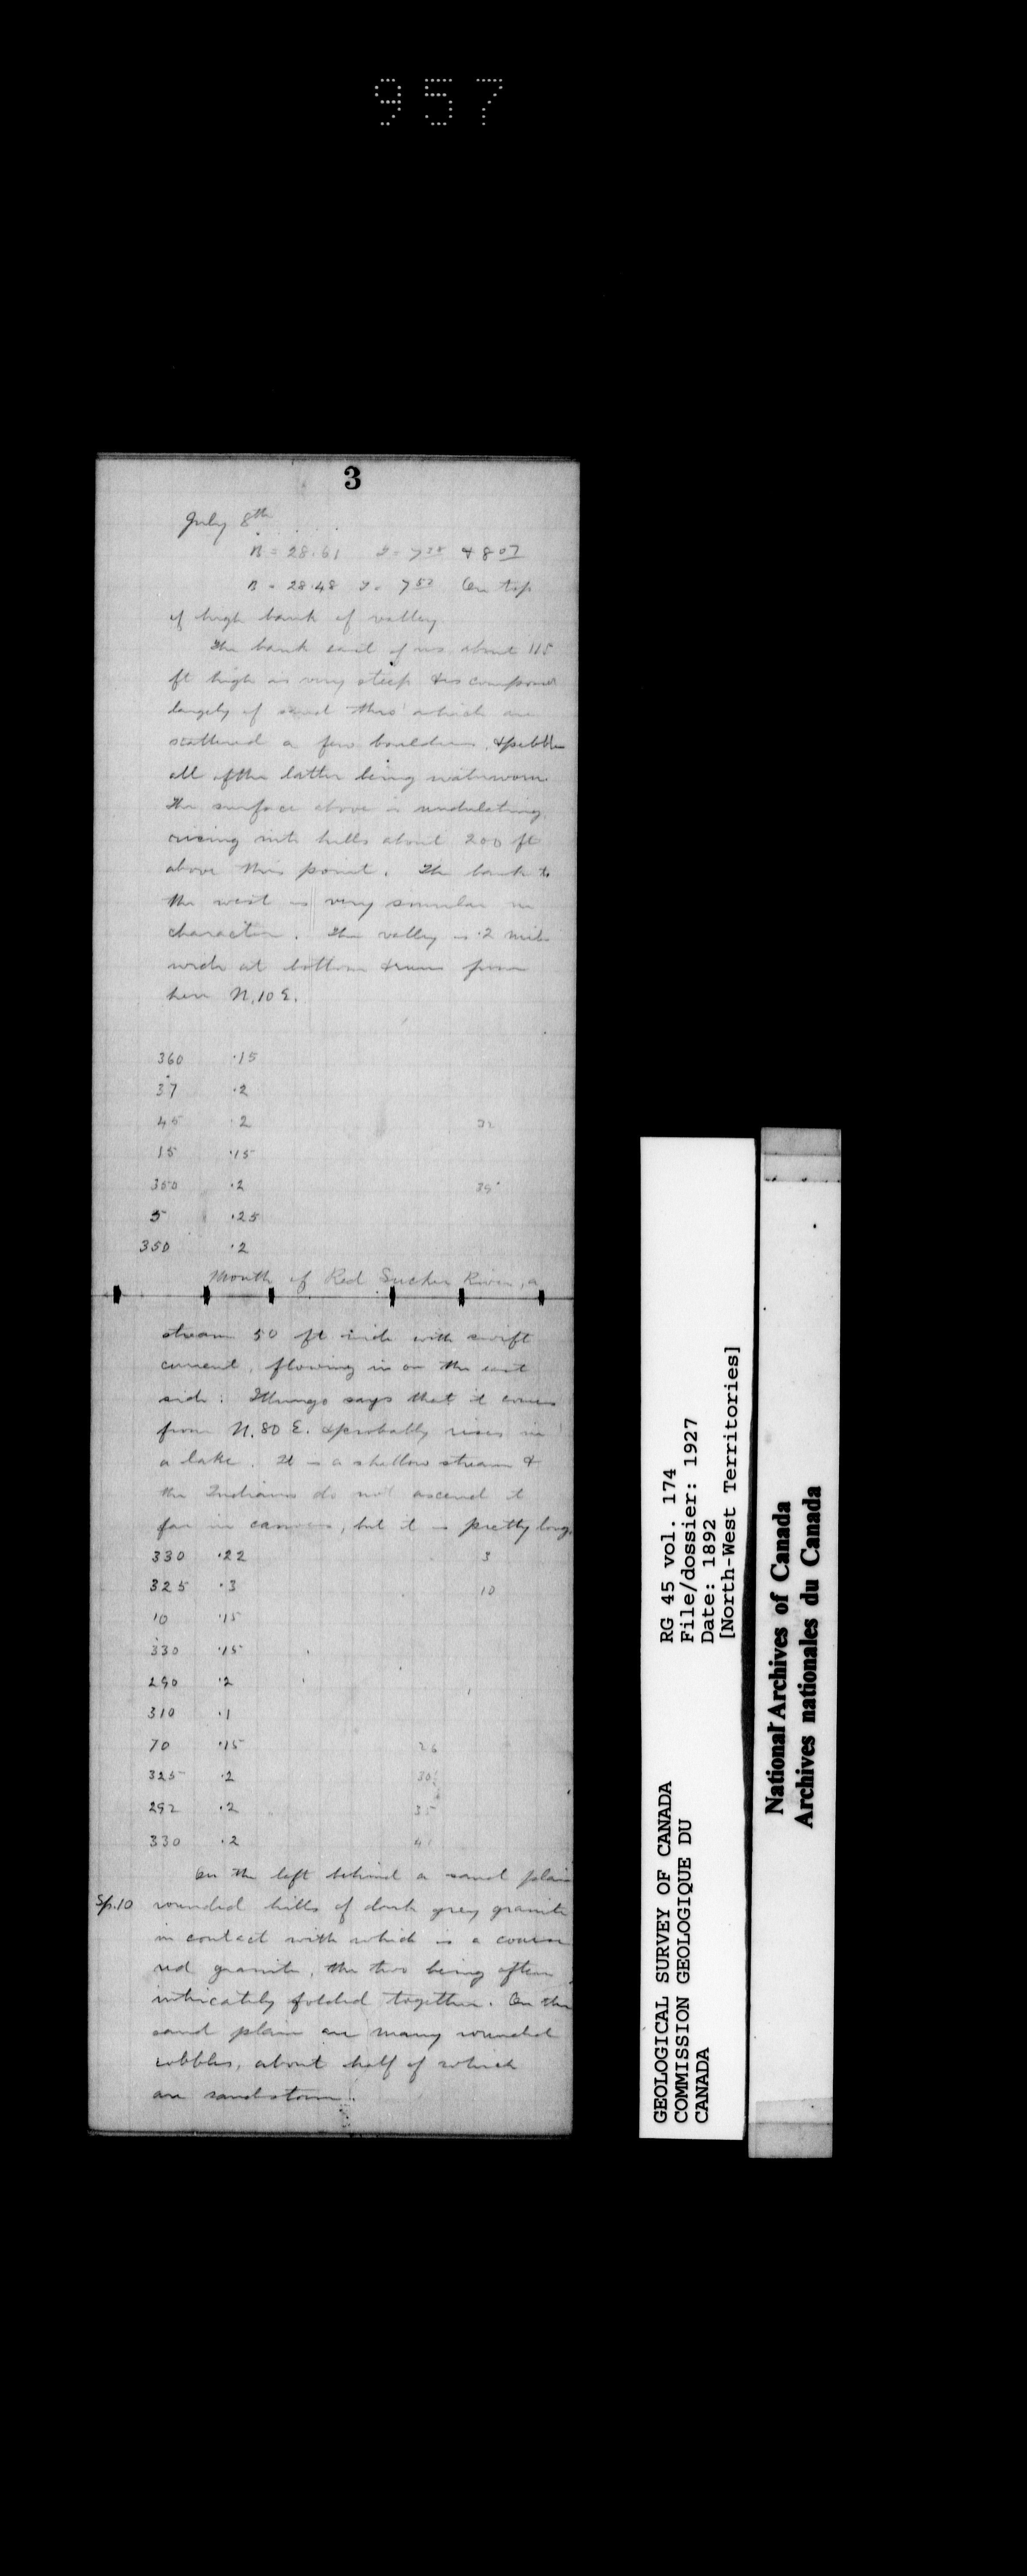 957
3
July 8th
B = 28.61 T = 7 38 & 8 07
B = 28.48 T = 7 52 On top
of high bank of valley.
The bank east of us about 115
ft high is very steep & is composed
largely of sand thro' which are
scattered a few boulders, & pebbles
all of the latter being waterworn.
The surface above is undulating,
rising into hills about 200 ft
above this point. The bank to
the west is very similar in
character. The valley is .2 mile
wide at bottom & runs from
here N.10 E.
360 .15
37 .2
45 .2 32
15 .15
350 .2 39
5 .25
350 .2
Mouth of Red Sucker River, a
stream 50 ft wide with swift
current, flowing in on the east
side: says that it comes
from N.80 E. & probably rises in
a lake. It is a shallow stream &
the Indians do not ascend it
far in canoes, but it is pretty long.
330 .22 3
325 .3 10
10 .15
330 .15
290 .2
310 .1
70 .15 26
325 .2 30
292 .2 35
330 .2 41
On the left behind a sand plain
Sp.10 rounded hills of dark grey granite
in contact with which is a coarse
red granite, the two being often
intricately folded together. On the
sand plain are many rounded
cobbles, about half of which
are sandstone.
GEOLOGICAL SURVEY OF CANADA
COMMISSION GEOLOGIQUE DU
CANADA
RG 45 vol. 174
File/dossier: 1927
Date: 1892
[North-West Territories]
National Archives of Canada
Archives nationales du Canada